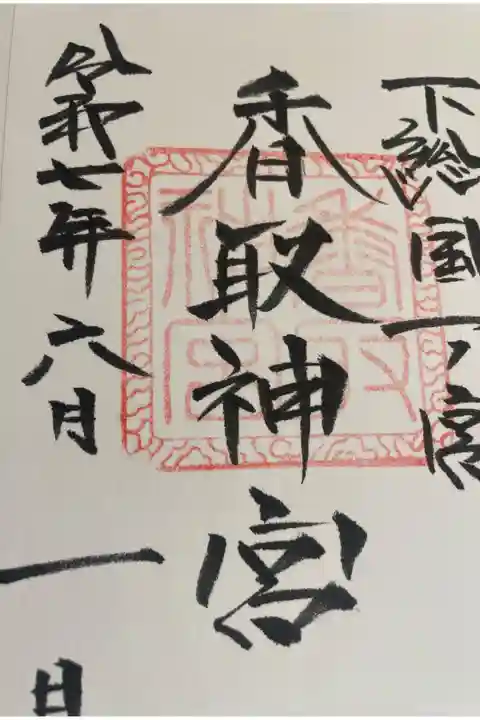 下総国一ノ宮
香取神宮
令和七年六月
一日